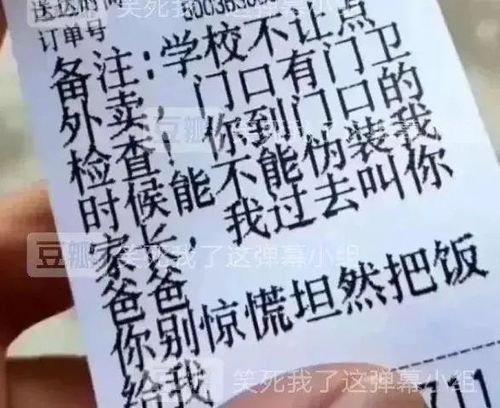 订单号
备注:学校不让点
外卖,门口有门卫
检查,你到门口的
时候能不能伪装我
家长,我过去叫你
爸爸
你别惊慌坦然把饭
给我
豆瓣 笑死我了这弹幕小组
豆瓣
豆瓣 笑死我了这弹幕小组
豆瓣 笑死我了这弹幕小组